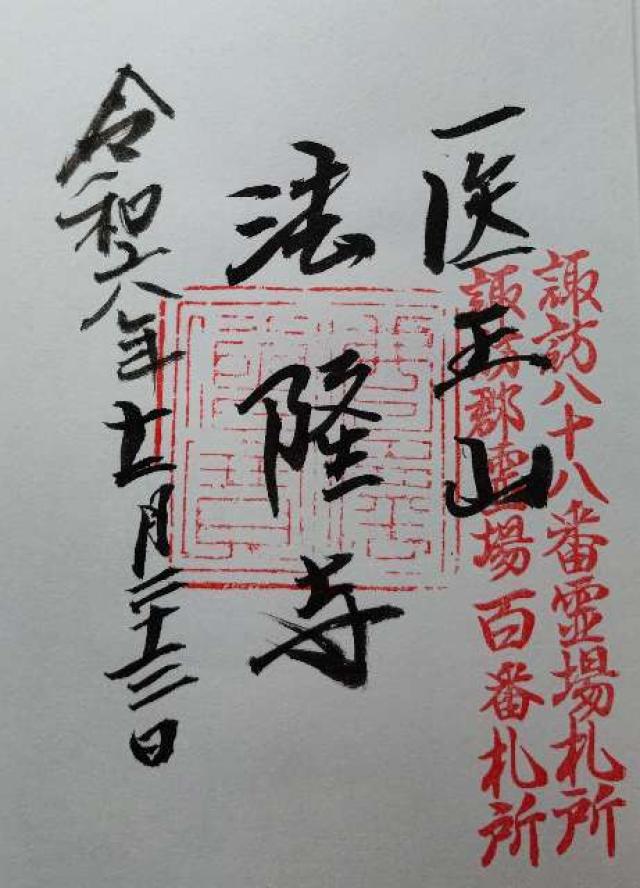 諏訪八十八番霊場札所
諏訪郡霊場百番札所
医王山
法隆寺
令和六年十一月二十三日